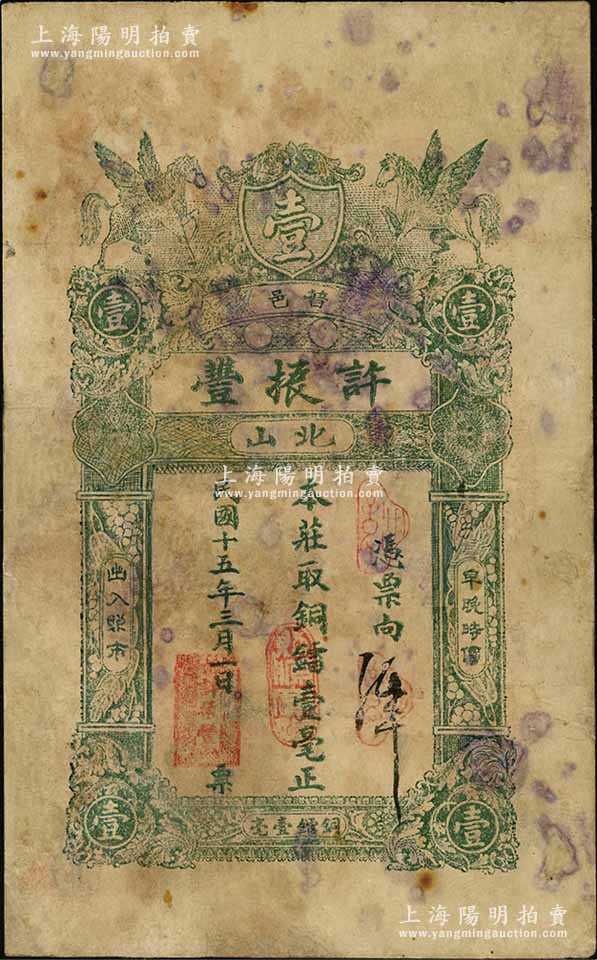 上海陽明拍賣
www.yangmingauction.com
壹
壹
壹
普邑
許振豐
北山
上海陽明拍賣
www.yangmingauction.com
早晚時價
憑票向
本莊取銅鐳壹毫正
民國十五年三月一日 票
出入照市
壹
壹
銅鐳壹毫
上海陽明拍賣
www.yangmingauction.com